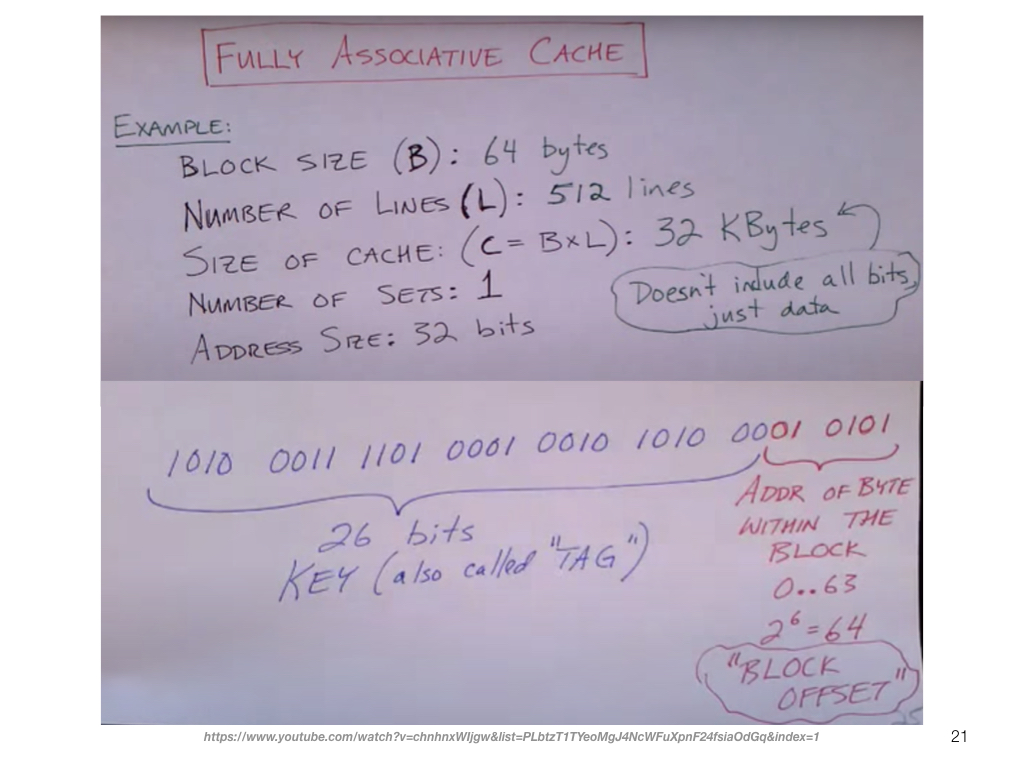 FULLY ASSOCIATIVE CACHE
EXAMPLE:
BLOCK SIZE (B): 64 bytes
NUMBER OF LINES (L): 512 lines
SIZE OF CACHE: (C = B×L): 32 KBytes
Doesn't include all bits,
just data
NUMBER OF SETS: 1
ADDRESS SIZE: 32 bits
1010 0011 1101 0001 0010 1010 0001 0101
26 bits
KEY (also called "TAG")
ADDR OF BYTE
WITHIN THE
BLOCK
0..63
2⁶ = 64
"BLOCK
OFFSET"
25
https://www.youtube.com/watch?v=chnhnxWIjgw&list=PLbtzT1TYeoMgJ4NcWFuXpnF24fsiaOdGq&index=1
21